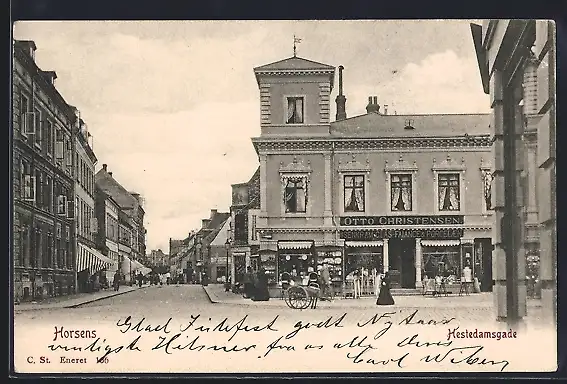 OTTO CHRISTENSEN
Horsens
Hestedamsgade
Glad Julefest godt Nytaar
venligste Hilsner fra os alle Deres
Carl
C. St. Eneret 166